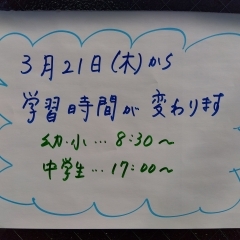 3月21日(木)から
学習時間が変わります
幼・小…8:30～
中学生…17:00～